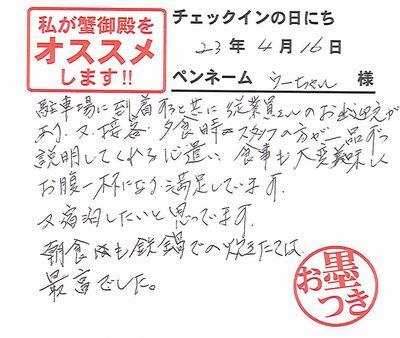 私が蟹御殿を
オススメ
します!!
チェックインの日にち
23年4月16日
ペンネーム うーちゃん 様
駐車場に到着すると共に従業員さんのお出迎えが
あり、又、接客、夕食時のスタッフの方が一品ずつ
説明してくれる心遣い、食事も大変美味しく
お腹一杯になり満足しています。
又宿泊したいと思ってます。
朝食も鉄鍋での炊きたては
最高でした。
お墨つき